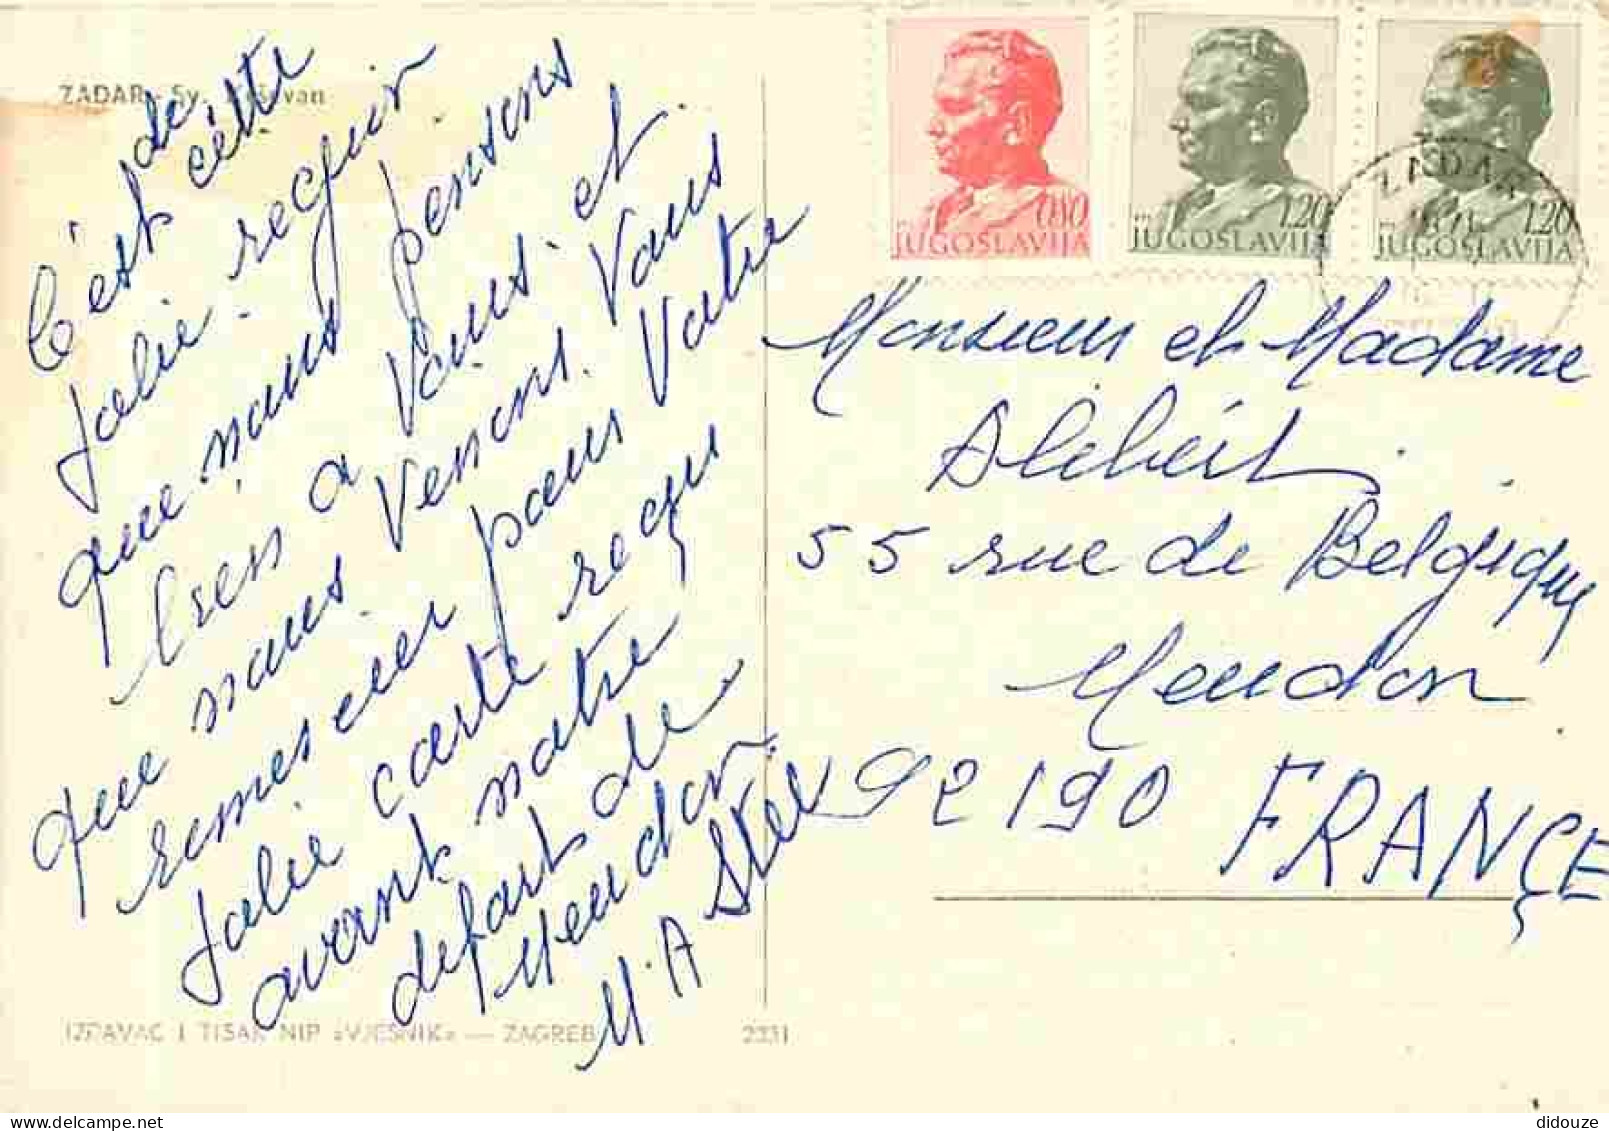 ZADAR - Sv. Stošvan
C'est de cette
jolie region
que nous pensons
bien a vous et
que nous venons vous
remercier pour votre
jolie carte reçu
avant notre
depart de
Meudon
M. A
IZDAVAČ I TISAK NIP »VJESNIK« — ZAGREB
2331
0,80
JUGOSLAVIJA
1,20
JUGOSLAVIJA
1,20
JUGOSLAVIJA
ZADAR
Monsieur et Madame
55 rue de Belgique
Meudon
92190 FRANÇE
didouze